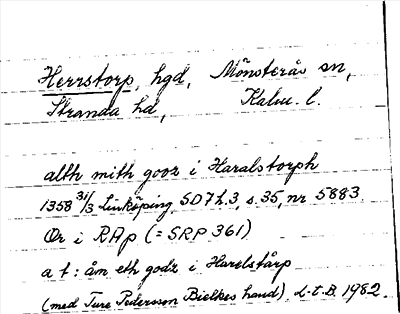 Herrstorp, hgd, Mönsterås sn,
Stranda hd, Kalm. l.
alth mith gooz i Haralstorph
1358 31/3 Linköping, SD 7 h. 3, s. 35, nr 5883.
Or i RAp (= SRP 361)
a t: åm eth godz i Harelstårp
(med Ture Pedersson Bielkes hand). L-t. B. 1982.